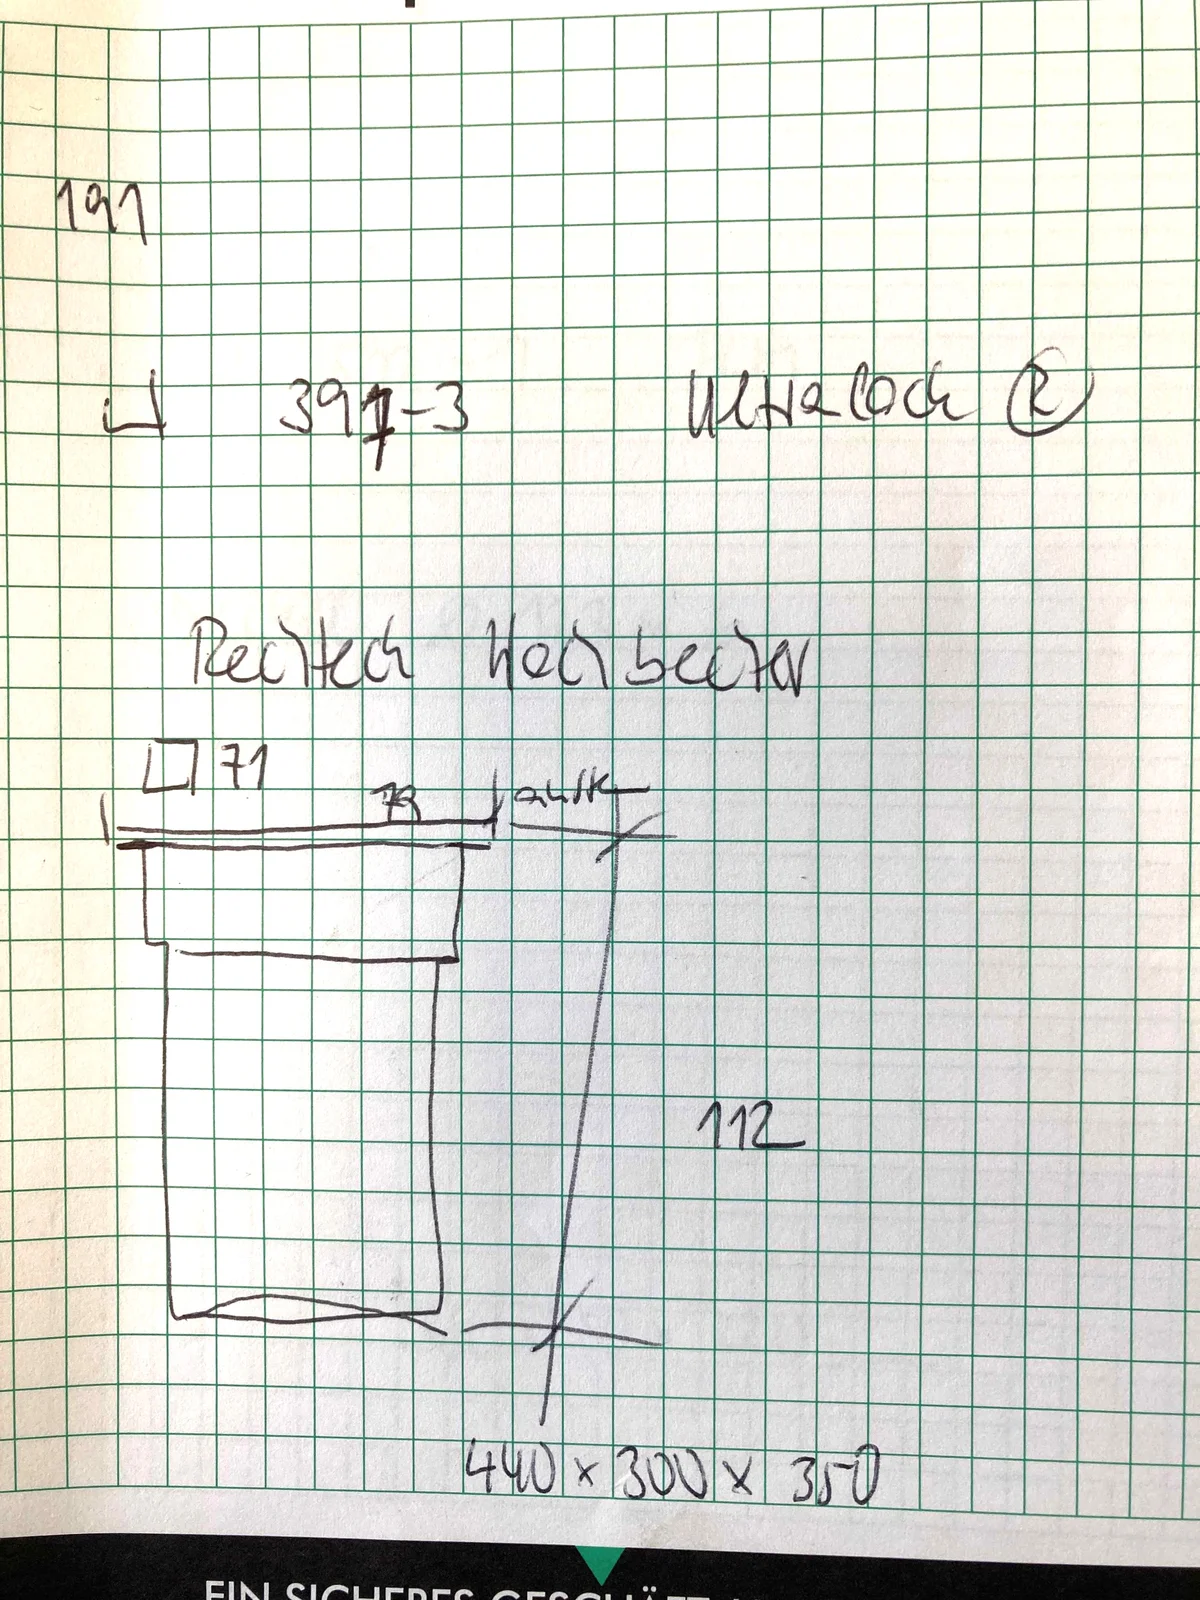 191
391-3 Ultralock ®
Rechteck Hochbecher
71
79
112
440 x 300 x 350
EIN SICHERES GESCHÄFT